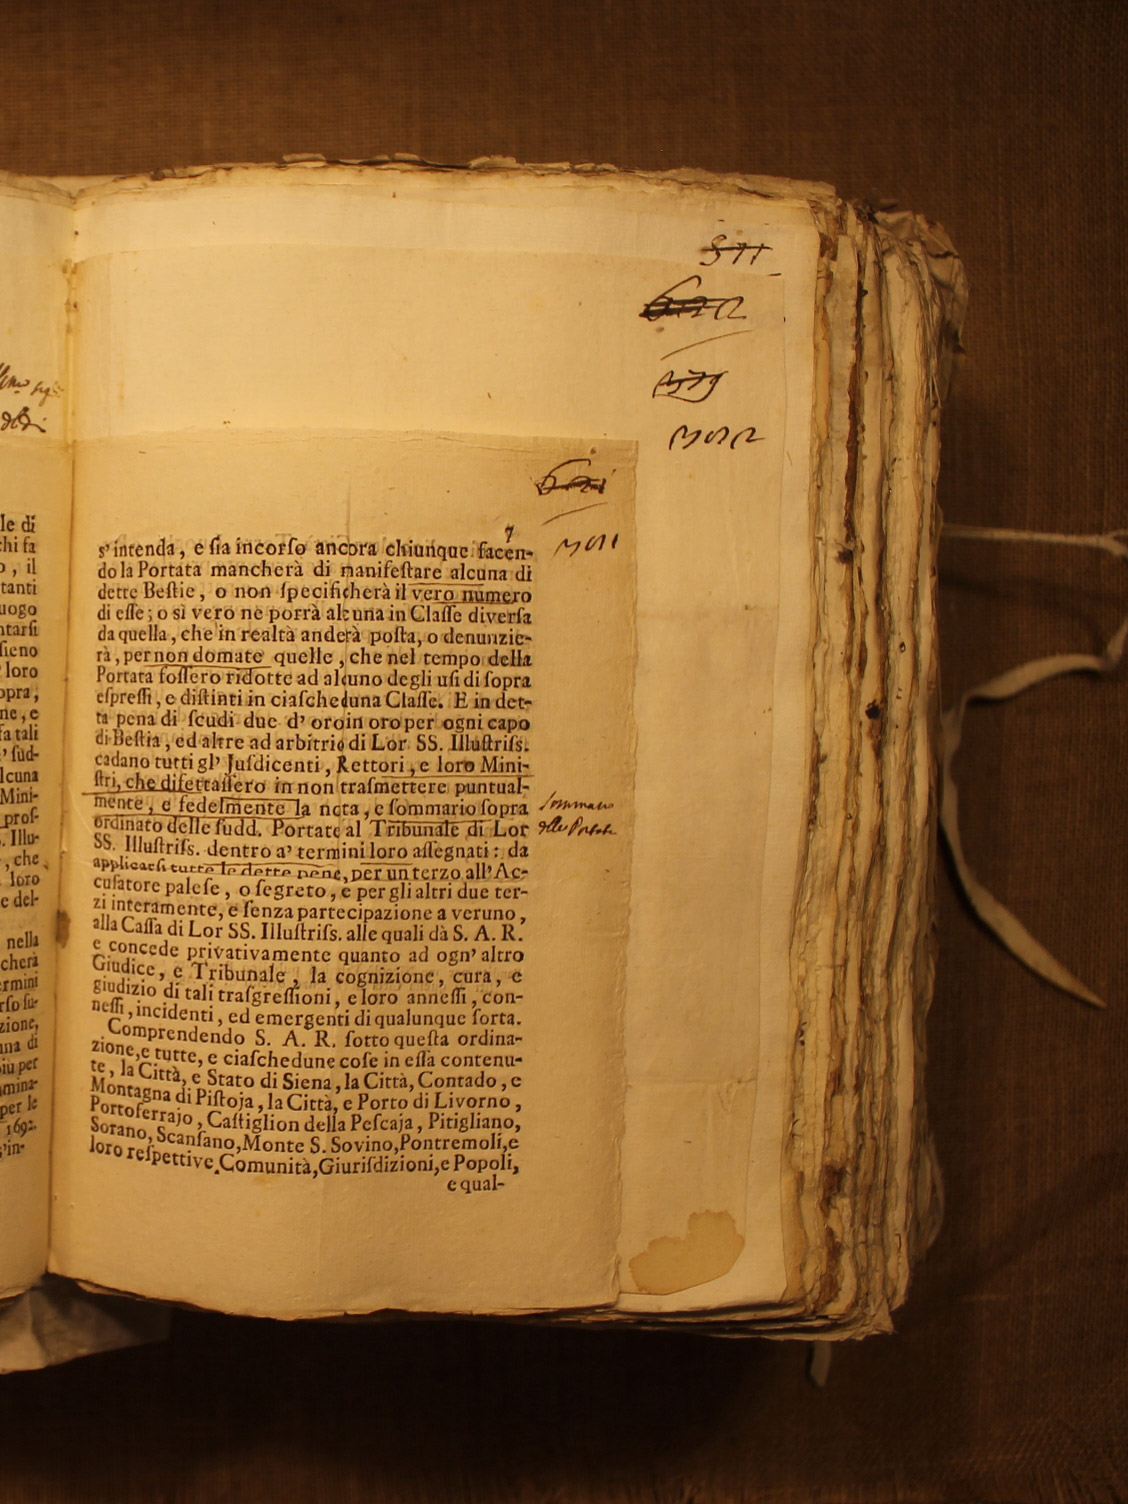 le di
chi fa
o, il
tanti
uogo
ntarsi
sieno
loro
opra,
ne, e
sa tali
sud-
lcuna
Mini-
pros-
Illu-
, che
loro
e del-
nella
cherà
ermini
zione,
ma di
iù per
mina-
per le
1692.
s'in-
7
s'intenda, e ſia incorſo ancora chiunque facen-
do la Portata mancherà di manifeſtare alcuna di
dette Beſtie, o non ſpecificherà il vero numero
di eſſe; o sì vero ne porrà alcuna in Claſſe diverſa
da quella, che in realtà anderà poſta, o denunzie-
rà, per non domate quelle, che nel tempo della
Portata foſſero ridotte ad alcuno degli uſi di ſopra
eſpreſſi, e diſtinti in ciaſcheduna Claſſe. E in det-
ta pena di ſcudi due d'oro in oro per ogni capo
di Beſtia, ed altre ad arbitrio di Lor SS. Illuſtriſs.
cadano tutti gl' Juſdicenti, Rettori, e loro Mini-
ſtri, che difettaſſero in non traſmettere puntual-
mente, e fedelmente la nota, e ſommario ſopra
ordinato delle ſudd. Portate al Tribunale di Lor
SS. Illuſtriſs. dentro a' termini loro aſſegnati: da
applicarſi tutte le dette pene, per un terzo all' Ac-
cuſatore paleſe, o ſegreto, e per gli altri due ter-
zi interamente, e ſenza partecipazione a veruno,
alla Caſſa di Lor SS. Illuſtriſs. alle quali dà S. A. R.
e concede privativamente quanto ad ogn' altro
Giudice, e Tribunale, la cognizione, cura, e
giudizio di tali traſgreſſioni, e loro anneſſi, con-
neſſi, incidenti, ed emergenti di qualunque ſorta.
Comprendendo S. A. R. ſotto queſta ordina-
zione, e tutte, e ciaſchedune coſe in eſſa contenu-
te, la Città, e Stato di Siena, la Città, Contado, e
Montagna di Piſtoja, la Città, e Porto di Livorno,
Portoferrajo, Caſtiglion della Peſcaja, Pitigliano,
Sorano, Scanſano, Monte S. Sovino, Pontremoli, e
loro reſpettive Comunità, Giuriſdizioni, e Popoli,
e qual-
Sommario
delle Portate